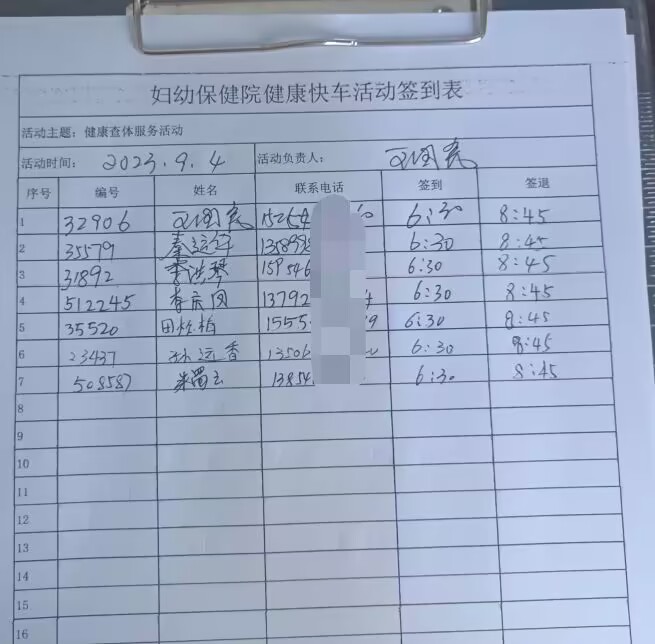 妇幼保健院健康快车活动签到表
活动主题：健康查体服务活动
活动时间： 2023.9.4 活动负责人：
序号 编号 姓名 联系电话 签到 签退
1 32906 6:30 8:45
2 35579 6:30 8:45
3 31892 159546 6:30 8:45
4 512245 13792 6:30 8:45
5 35520 1555 6:30 8:45
6 23437 孙远香 13506 6:30 8:45
7 508587 13854 6:30 8:45
8
9
10
11
12
13
14
15
16